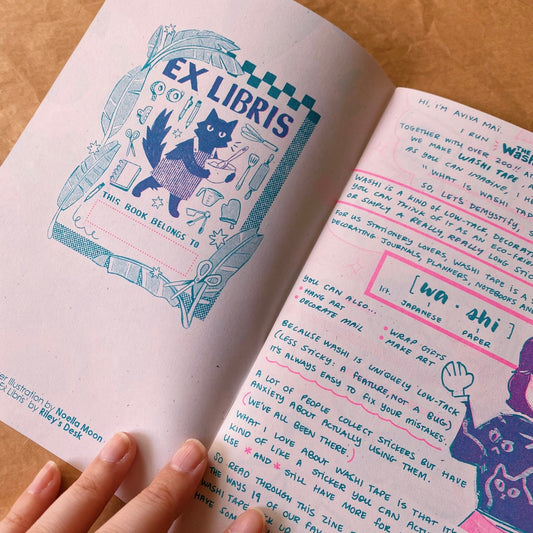 EX LIBRIS
THIS BOOK BELONGS TO
er Illustration by Noella Moon
Ex Libris' by Riley's Desk
HI, I'M AVIVA MAI
I RUN THE Wash
TOGETHER WITH OVER 200
WE MAKE WASHI TAPE,
AS YOU CAN IMAGINE, I HE
"WHAT IS WASHI TAP
SO, LET'S DEMYSTIFY,
WASHI IS A KIND OF LOW-TACK, DECORAT
YOU CAN THINK OF IT AS AN ECO-FRIE
OR SIMPLY A REALLY, REALLY LONG STIC
FOR US STATIONERY LOVERS, WASHI TAPE IS A
DECORATING JOURNALS, PLANNERS, NOTEBOOKS AN
[wa・shi]
lit. JAPANESE PAPER
YOU CAN ALSO...
HANG ART
DECORATE MAIL
WRAP GIFTS
MAKE ART
BECAUSE WASHI IS UNIQUELY LOW-TACK
(LESS STICKY: A FEATURE, NOT A BUG)
IT'S ALWAYS EASY TO FIX YOUR MISTAKES.
A LOT OF PEOPLE COLLECT STICKERS BUT HAVE
ANXIETY ABOUT ACTUALLY USING THEM.
(WE'VE ALL BEEN THERE.)
WHAT I LOVE ABOUT WASHI TAPE IS THAT IT'
KIND OF LIKE A STICKER YOU CAN ACTU
USE *AND* STILL HAVE MORE FOR
SO READ THROUGH THIS ZINE
THE WAYS 19 OF OUR FAV
WASHI TAPE
HAVE SOM